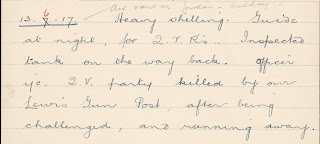 Our raid on
13.6.17. Heavy shelling. Guide
at night, for Q.V.R's. Inspected
tank on the way back. Officer
i/c. Q.V. party killed by our
Lewis Gun Post, after being
challenged, and running away.